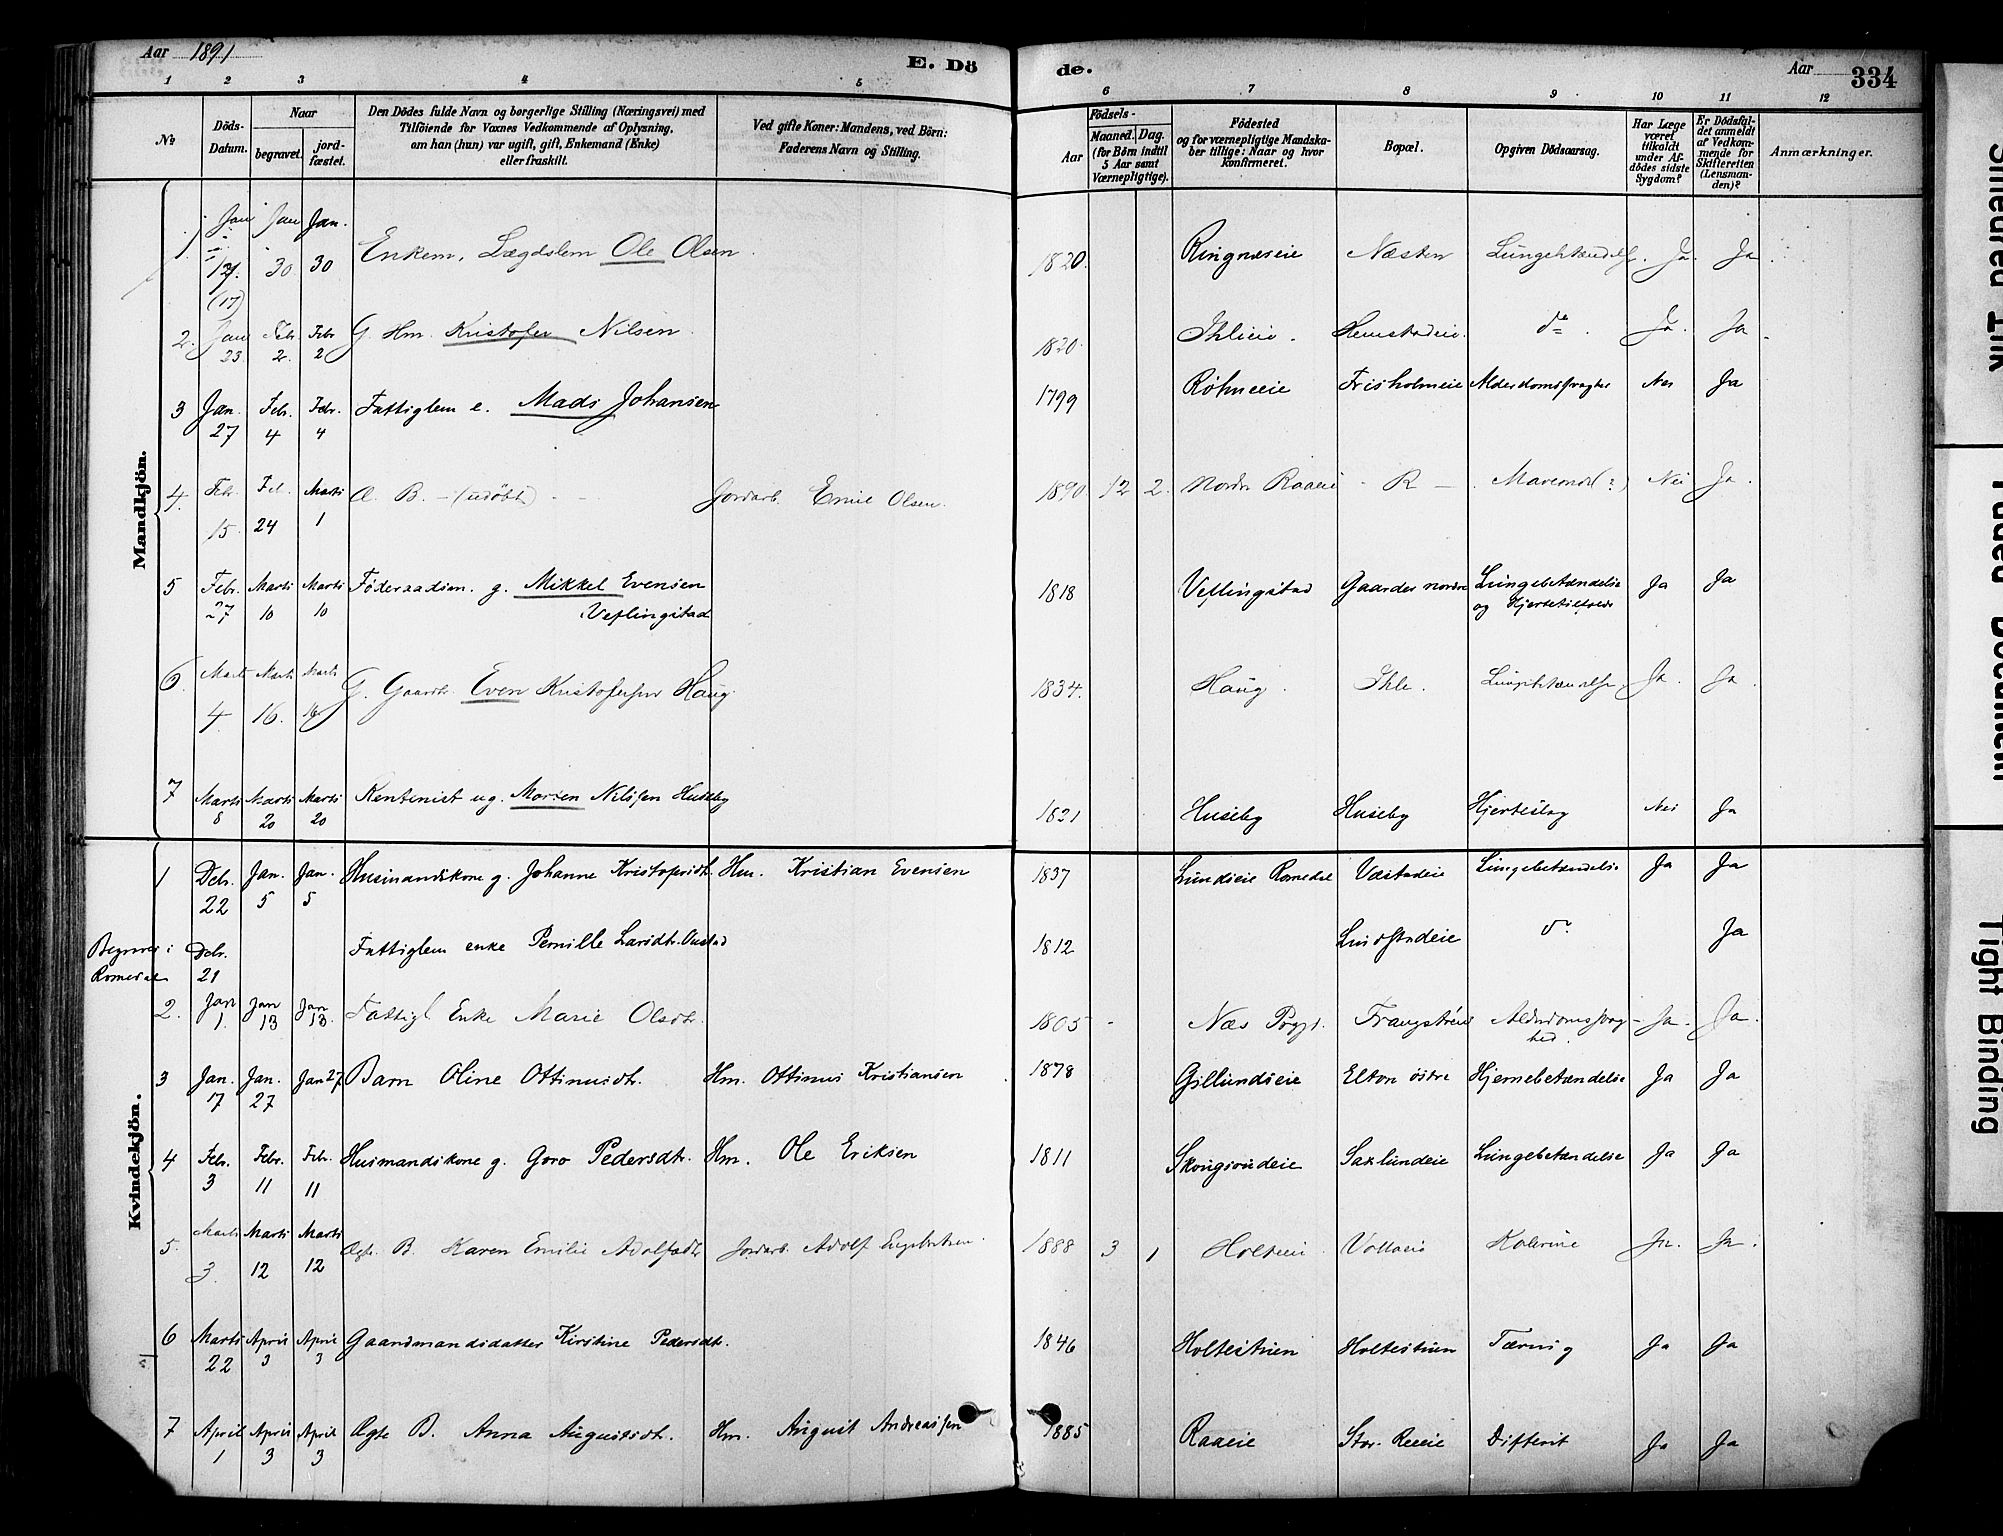 Aar 1891
E. Dö
de.
Aar
334
1 2 3 4 5 6 7 8 9 10 11 12
No
Döds-Datum.
Naar
begravet.
jordfæstet.
Den Dödes fulde Navn og borgerlige Stilling (Næringsvei) med
Tilföiende for Voxnes Vedkommende af Oplysning,
om han (hun) var ugift, gift, Enkemand (Enke)
eller fraskilt.
Ved gifte Koner: Mandens, ved Börn:
Faderens Navn og Stilling.
Födsels-
Aar
Maaned. Dag.
(for Börn indtil
5 Aar samt
Værnepligtige).
Födested
og for værnepligtige Mandska-
ber tillige: Naar og hvor
konfirmeret.
Bopæl.
Opgiven Dödsaarsag.
Har Læge
været
tilkaldt
under Af-
dödes sidste
Sygdom?
Er Dödsfal-
det anmeldt
af Vedkom-
mende for
Skifteretten
(Lensman-
den)?
Anmærkninger.
Mandkjön.
1. Jan (17) Jan 30 Jan. 30 Enkem. Lægdslem Ole Olsen 1820. Ringnæseie Næsten Lungebetændelse Ja Ja
2. Jan 23 Feb. 2. Febr 2 G. Hm. Kristofer Nilsen 1820. Ihleeie. Hemstadeie. do. Ja. Ja
3 Jan. 27 Febr. 4 Febr. 4 Fattiglem e. Mads Johansen 1799 Frisholmeie Nei Ja
4. Febr. 15 Feb. 24 Marts 1 Æ. B. - (udøbt) Jordarb. Emil Olsen. 1890 12 2. Nordre Raaeie - R - (?) Nei Ja.
5 Febr. 27 Marts 10 Marts 10 Føderaadsm. g. Mikkel Evensen
Veflingstad 1818 Veflingstad Gaarder nordre Lungebetændelse
og Hjertetilfælde Ja Ja
6. Marts 4 Marts 16. Marts 16 G. Gaardbr. Even Kristofersen Haug. 1834. Haug. Ihle. Lungebetændelse Ja. Ja.
7 Marts 8 Marts 20 Marts 20 Rentenist ug. Morten Nilssen Huseby 1821 Huseby Huseby Hjerteslag Nei Ja
Kvindekjön.
1 Dcbr. 22 Jan. 5 Jan. 5 Husmandskone g. Johanne Kristofersdtr. Hm. Kristian Evensen 1837 Lundseie Romedal Lungebetændelse Ja Ja
Begravet i
Romedal Dcbr. 21 Fattiglem enke Pernille Larsdtr. 1812 do Ja
2. Jan 1. Jan 13 Jan 13. Fattigl. Enke Marie Olsdtr. 1805 Næs Prgj. Ja. Ja.
3 Jan. 17 Jan. 27 Jan 27 Barn Oline Ottinusdtr. Hm. Ottinus Kristiansen 1878 Gillundseie Elton østre Hjernebetændelse Ja Ja
4 Febr. 3 Febr. 11 Febr. 11 Husmandskone g. Goro Pedersdtr. Hm. Ole Eriksen 1811 Skougsrudeie Saxlundeie Lungebetændelse Ja Ja
5. Marts 3. Marts 12 Marts 12 Ægte B. Karen Emilie Adolfsdtr. Jordarb. Adolf Engebretsen. 1888 3 1 Holteeie Voldeie Kolerine Ja. Ja.
6 Marts 22 April 3 April 3 Gaardmandsdatter Kirstine Pedersdtr. 1846 Holtestuen Holtestuen Tæring Ja Ja
7 April 1 April 3 April 3 Ægte B. Anna Augustsdtr. Hm. August Andreassen 1885 Raaeie Difterit Ja Ja
Tight Binding